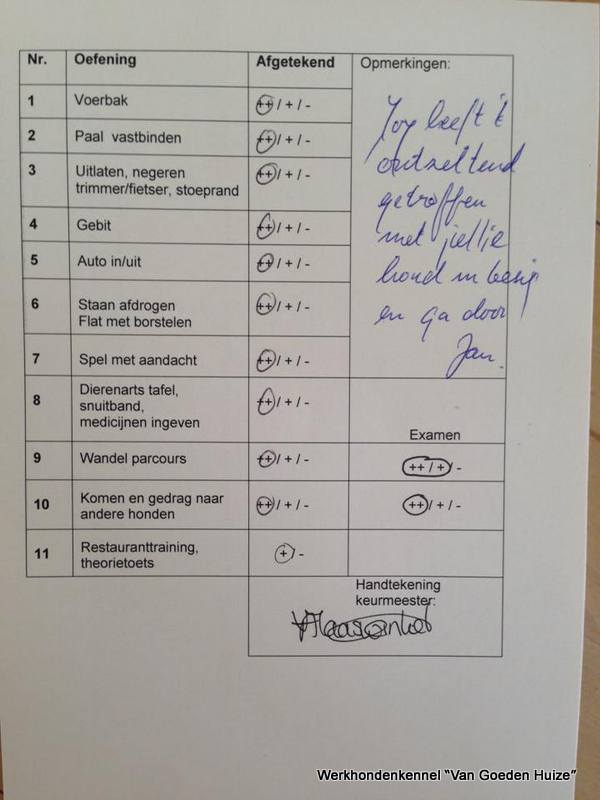 Nr. Oefening Afgetekend Opmerkingen:
1 Voerbak ++/ + / -
2 Paal vastbinden ++/ + / -
3 Uitlaten, negeren
trimmer/fietser, stoeprand ++/ + / -
4 Gebit ++/ + / -
5 Auto in/uit ++/ + / -
6 Staan afdrogen
Flat met borstelen ++/ + / -
7 Spel met aandacht ++/ + / -
Joy heeft 't
ontzettend
getroffen
met jullie
hond in bezig
en ga door
Jan.
8 Dierenarts tafel,
snuitband,
medicijnen ingeven ++/ + / -
Examen
9 Wandel parcours ++/ + / - ++ / + / -
10 Komen en gedrag naar
andere honden ++/ + / - ++/ + / -
11 Restauranttraining,
theorietoets + / -
Handtekening
keurmeester:
Werkhondenkennel "Van Goeden Huize"